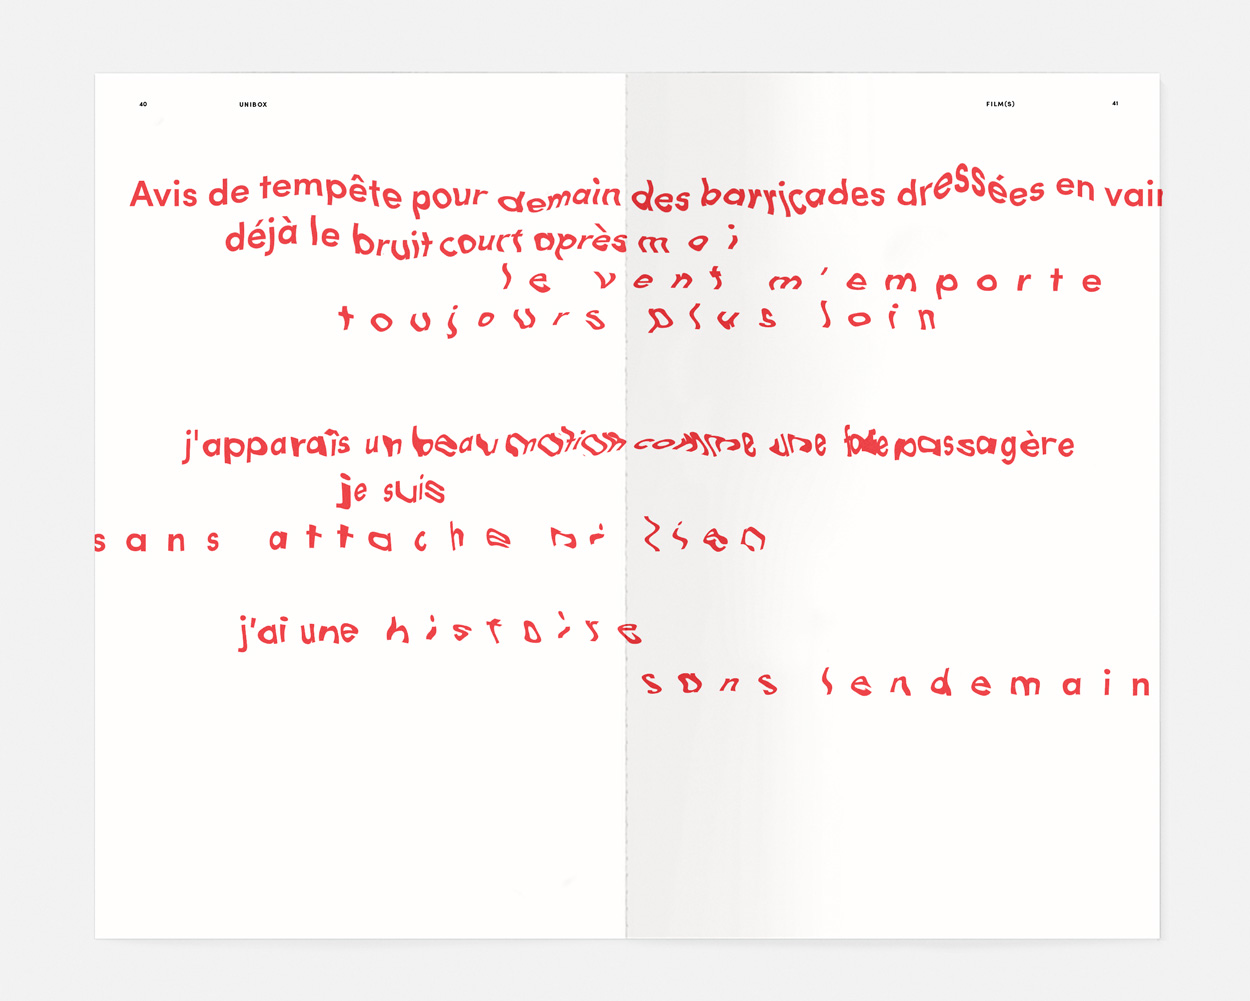 40
UNIBOX
FILM(S)
41
Avis de tempête pour demain des barricades dressées en vain
déjà le bruit court après moi
le vent m'emporte
toujours plus loin
j'apparaîs un beau matin comme une folie passagère
je suis
sans attache ni lien
j'ai une histoire
sans lendemain